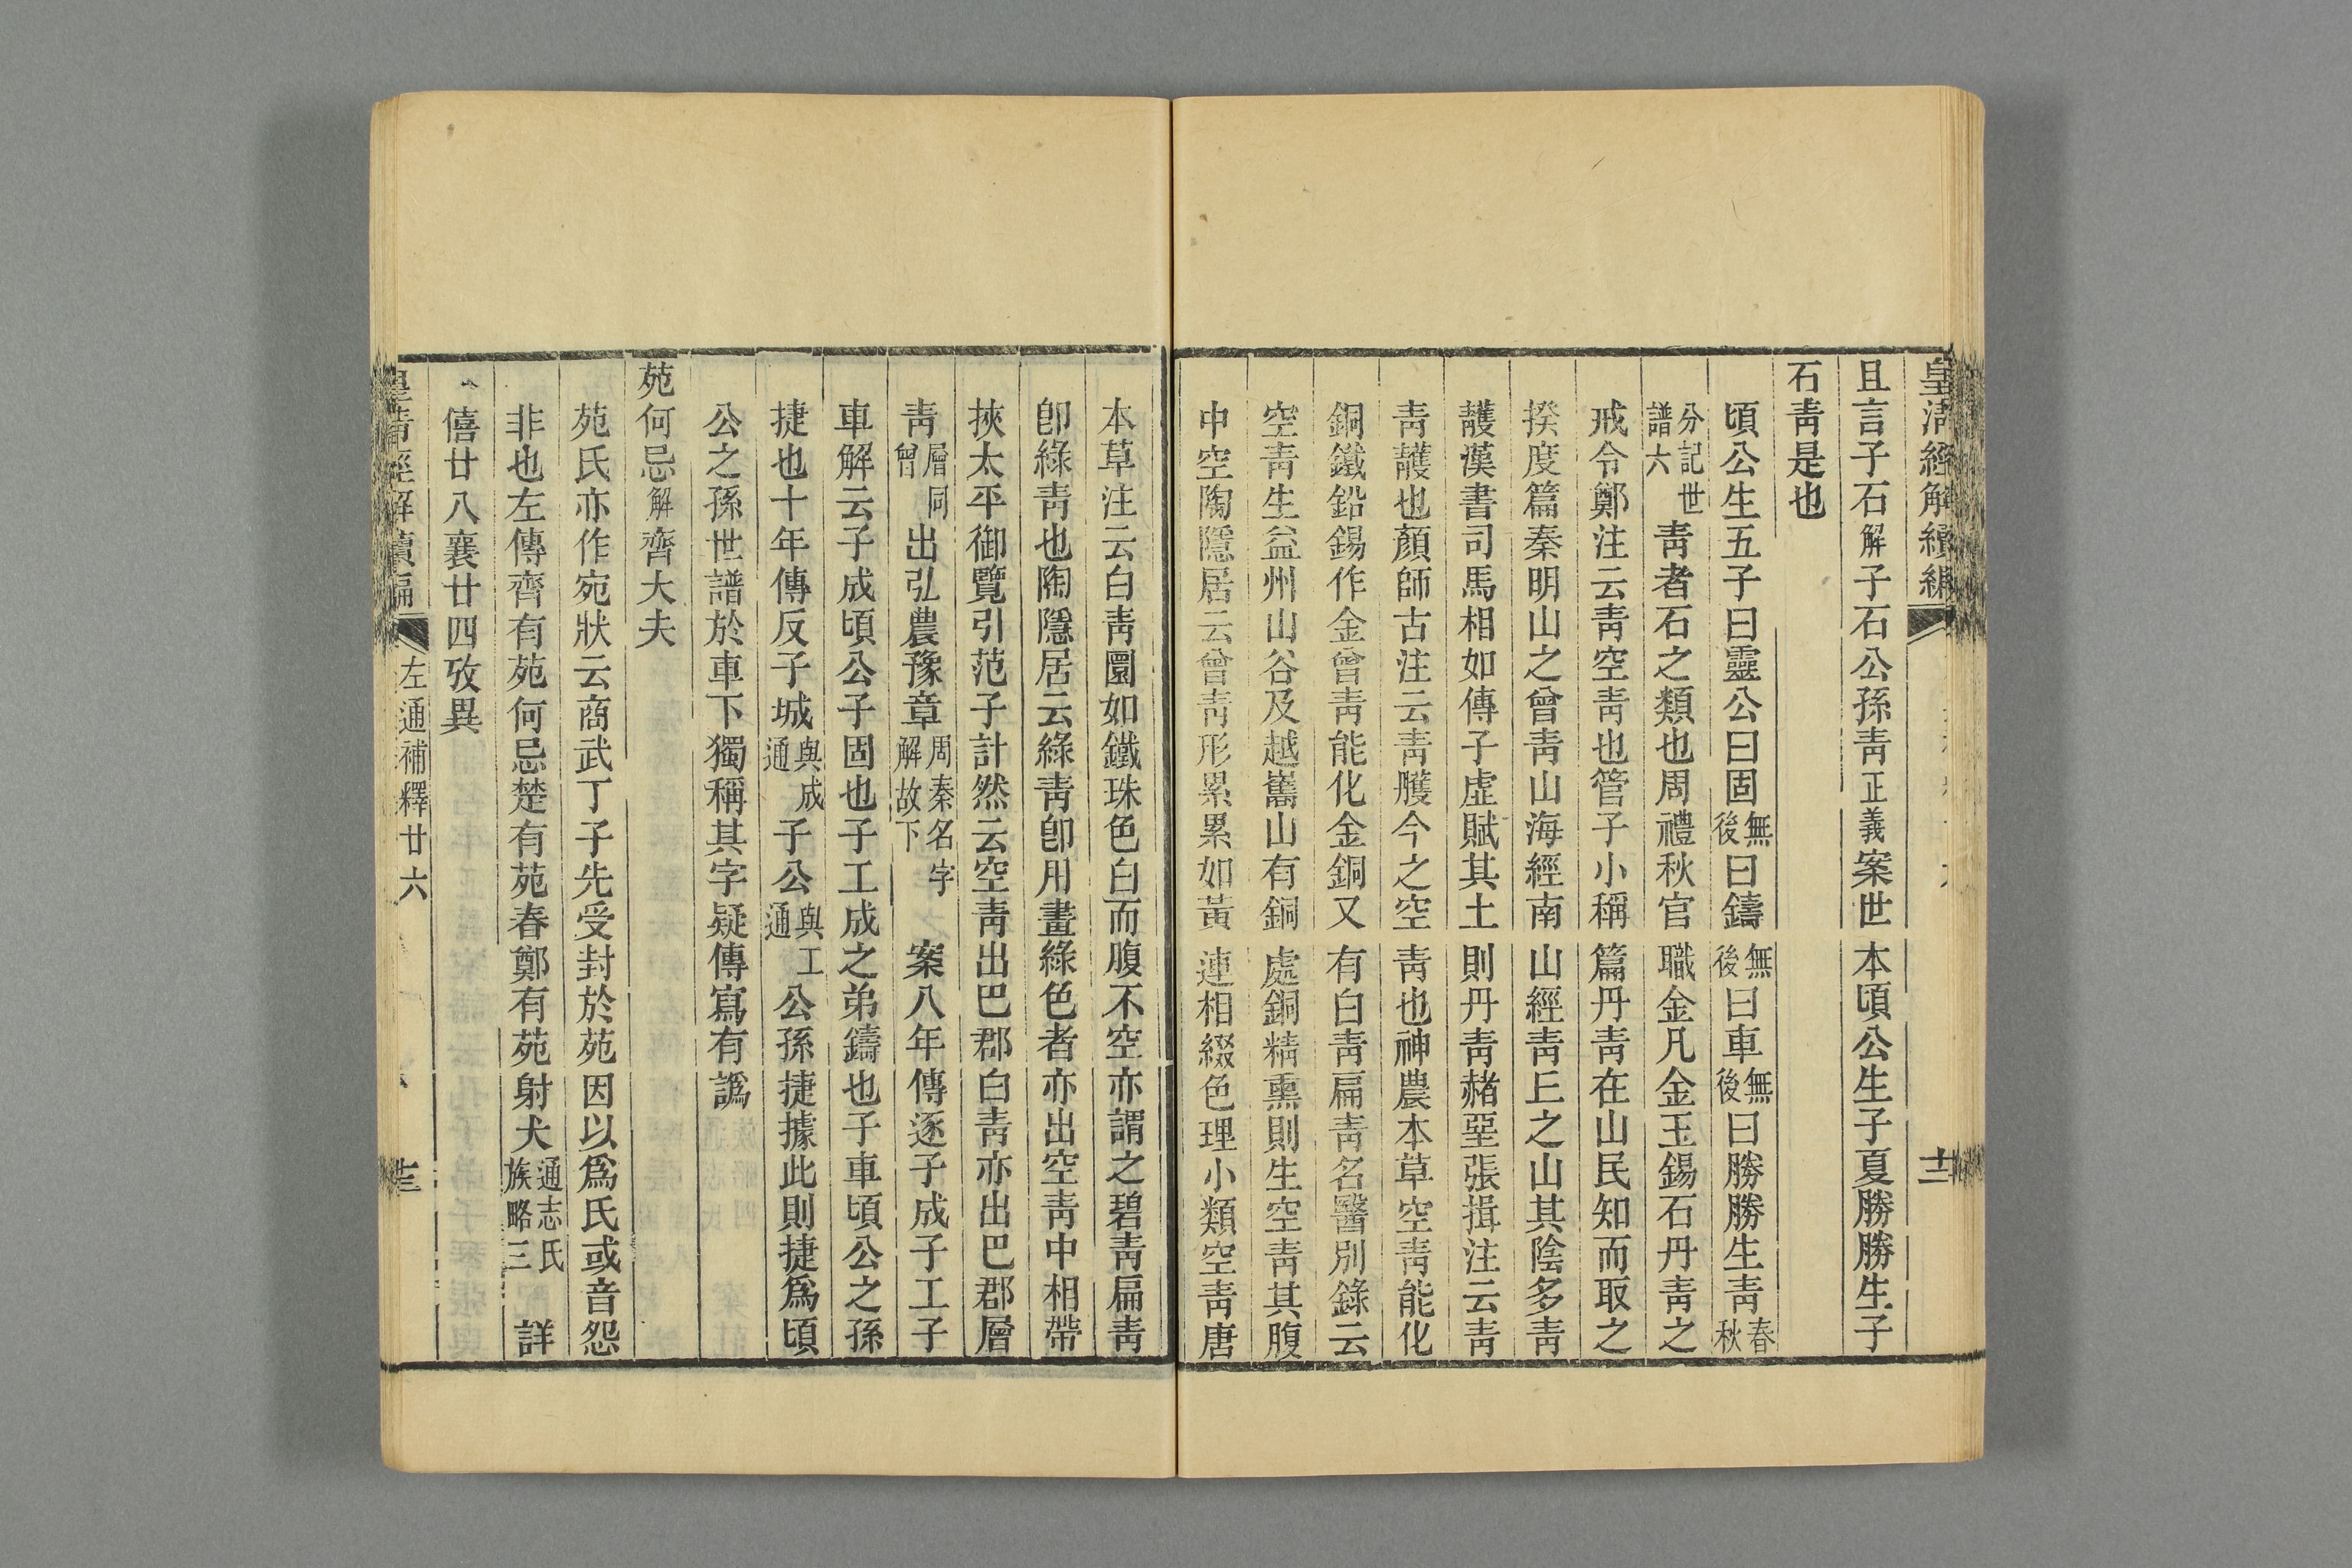 皇清經解續編
十二
且言子石解子石公孫靑正義案世本頃公生子夏勝勝生子
石靑是也
頃公生五子曰靈公曰固無後曰鑄無後曰車無後曰勝勝生靑春秋
分記世譜六靑者石之類也周禮秋官職金凡金玉錫石丹靑之
戒令鄭注云靑空靑也管子小稱篇丹靑在山民知而取之
揆度篇秦明山之曾靑山海經南山經靑丘之山其陰多靑
頀漢書司馬相如傳子虛賦其土則丹靑赭堊張揖注云靑
靑頀也顏師古注云靑雘今之空靑也神農本草空靑能化
銅鐵鉛錫作金曾靑能化金銅又有白靑扁靑名醫別錄云
空靑生益州山谷及越嶲山有銅處銅精熏則生空靑其腹
中空陶隱居云曾靑形累累如黃連相綴色理小類空靑唐
本草注云白靑圜如鐵珠色白而腹不空亦謂之碧靑扁靑
卽綠靑也陶隱居云綠靑卽用畫綠色者亦出空靑中相帶
挾太平御覽引范子計然云空靑出巴郡白靑亦出巴郡層
靑層同曾出弘農豫章周秦名字解故下案八年傳逐子成子工子
車解云子成頃公子固也子工成之弟鑄也子車頃公之孫
捷也十年傳反子城與成通子公與工通公孫捷據此則捷爲頃
公之孫世譜於車下獨稱其字疑傳寫有譌
苑何忌解齊大夫
苑氏亦作宛狀云商武丁子先受封於苑因以爲氏或音怨
非也左傳齊有苑何忌楚有苑春鄭有苑射犬通志氏族略三詳
僖廿八襄廿四攷異
皇淸經解續編
左通補釋廿六